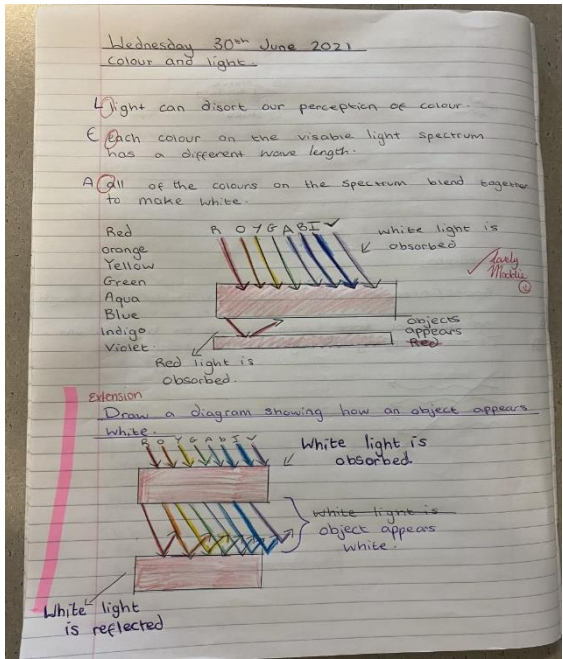 Wednesday 30th June 2021
Colour and light.
L light can disort our perception of colour.
E Each colour on the visable light spectrum
has a different wave length.
A all of the colours on the spectrum blend together
to make white.
Red
orange
Yellow
Green
Aqua
Blue
Indigo
Violet.
R O Y G A B I V
white light is
absorbed
lovely
Maddie
objects
appears
Red
Red light is
absorbed.
Extension
Draw a diagram showing how an object appears
white.
R O Y G A b I V
White light is
absorbed
white light is
object appears
white.
White light
is reflected